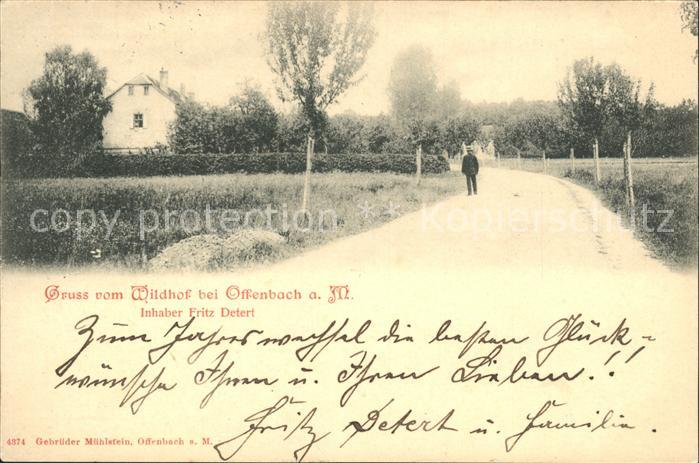 copy protection ** Kopierschutz
Gruss vom Wildhof bei Offenbach a. M.
Inhaber Fritz Detert
Zum Jahreswechsel die besten Glück-
wünsche Ihnen u. Ihren Lieben!!
Fritz Detert u. Familie.
4374 Gebrüder Mühlstein, Offenbach a. M.